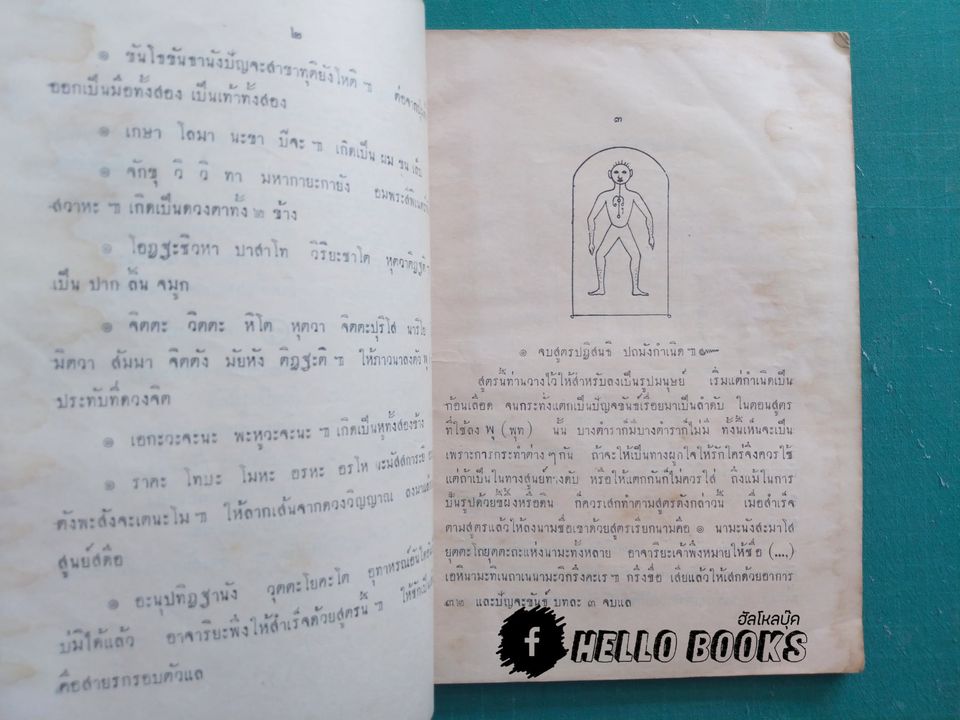 ๒
๑ ขันโธขันธานังปัญจะสาขาทุติยังโหติ ฯ
ออกเป็นมือทั้งสอง เป็นเท้าทั้งสอง
๑ เกษา โลมา นะขา ปีจะ ฯ เกิดเป็น ผม ขน เล็บ
๑ จักขุ วิ วิ ทา มหากายะกายัง
สวาหะ ฯ เกิดเป็นดวงตาทั้ง ๒ ข้าง
๑ โอฏฐะชิวหา ปาสาโท วิริยะชาโต หุตวาติฏฐติ
เป็น ปาก ลิ้น จมูก
๑ จิตตะ วิตตะ หิโต หุตวา จิตตะปุริโส
มิตวา สัมมา จิตตัง มัยหัง ติฏฐะติ ฯ ให้ภาวนาลงตัว พุ
ประทับที่ดวงจิต
๑ เอกะวะจะนะ พะหูวะจะนะ ฯ เกิดเป็นหูทั้งสองข้าง
๑ ราคะ โทบะ โมหะ อรหะ อรโห นะมัสสการะ
ตังพะสังจะเตนะโม ฯ ให้ลากเส้นจากดวงวิญญาณ ลงมา
สูนย์สดือ
๑ อะนุปทิฏฐานัง วุตตะโยคะโต อุทาหรณ์
บ่มิได้แล้ว อาจาริยะพึงให้สำเร็จด้วยสูตรนี้ ฯ
คือสายรกรอบตัวแล
๓
๑ จบสูตรปฏิสนธิ ปถมังกำเนิด ฯ
สูตรนี้ท่านวางไว้ให้สำหรับลงเป็นรูปมนุษย์ เริ่มแต่กำเนิดเป็น
ก้อนเลือด จนกระทั่งแตกเป็นปัญจขันธ์เรื่อยมาเป็นลำดับ ในตอนสูตร
ที่ใช้ลง พุ (พุท) นั้น บางตำราก็มีบางตำราก็ไม่มี ทั้งนี้เห็นจะเป็น
เพราะการกระทำต่าง ๆ กัน ถ้าจะให้เป็นทางผูกใจให้รักใคร่จึงควรใช้
แต่ถ้าเป็นในทางสูนย์ทางดับ หรือให้แตกกันก็ไม่ควรใส่ ถึงแม้ในการ
ปั้นรูปด้วยขี้ผึ้งหรือดิน ก็ควรเสกทำตามสูตรดังกล่าวนี้ เมื่อสำเร็จ
ตามสูตรแล้วให้ลงนามชื่อเขาด้วยสูตรเรียกนามคือ ๑ นามะนังสะมาโส
ยุตตะโถยุตตะถะแห่งนามะทั้งหลาย อาจาริยะเจ้าพึงหมายให้ชื่อ (....)
เอหินามะทิเนถาเนนามะวิกรึงคะเร ฯ กรึงชื่อ เสี่ยแล้วให้เสกด้วยอาการ
๓๒ และปัญจะขันธ์ บทละ ๓ จบแล
ฮัลโหลบุ๊ค
f HELLO BOOKS